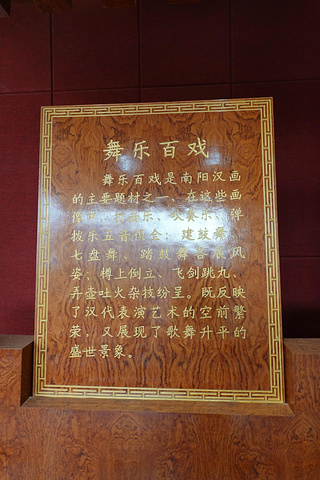 舞乐百戏
舞乐百戏是南阳汉画
的主要题材之一，在这些画
像中，击乐、吹奏乐、弹
拨乐五音俱全；建鼓舞、
七盘舞、踏鼓舞各展风
姿；樽上倒立、飞剑跳丸、
弄壶吐火杂技纷呈。既反映
了汉代表演艺术的空前繁
荣，又展现了歌舞升平的
盛世景象。